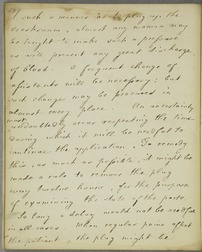 such a manner as to plug up the
almost any woman may
be taught to make such a pressure
as will prevent any great discharge
of blood. A frequent change of
assistants will be necessary; but
such changes may be procured in
almost every place. An uncertainty
undoubtedly occurs respecting the time
during which it will be needful to
continue the application. To remedy
this, as much as possible, it might be
made a rule to remove the plug
every twelve hours, for the purpose
of examining the state of the parts
So long a delay would not be needful
in all cases. When regular pains affect
the patient the plug might be